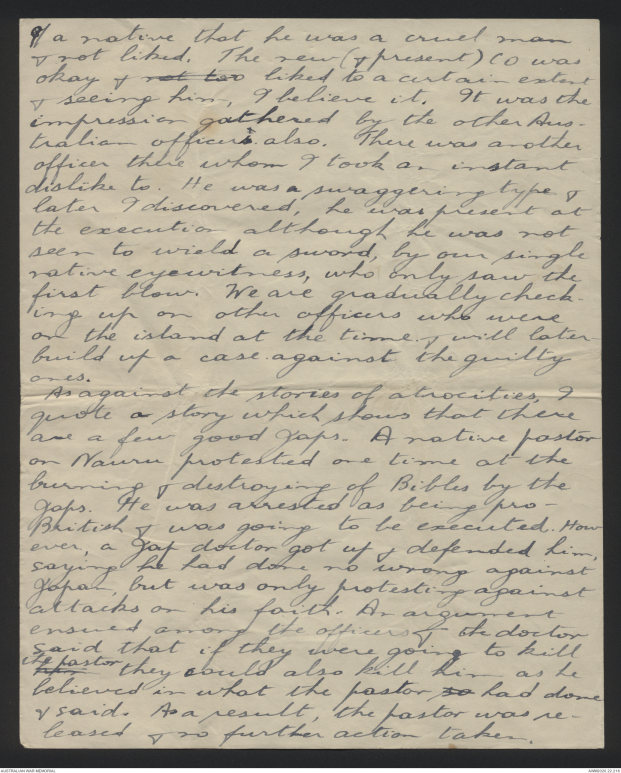 of a native that he was a cruel man
& not liked. The new (& present) CO was
okay & not too liked to a certain extent
& seeing him, I believe it. It was the
impression gathered by the other Aus-
tralian officers also. There was another
officer there whom I took an instant
dislike to. He was a swaggering type &
later I discovered, he was present at
the execution although he was not
seen to wield a sword, by our single
native eyewitness, who only saw the
first blow. We are gradually check-
ing up on other officers who were
on the island at the time & will later
build up a case against the guilty
ones.
As against the stories of atrocities, I
quote a story which shows that there
are a few good Japs. A native pastor
on Nauru protested one time at the
burning & destroying of Bibles by the
Japs. He was arrested as being pro-
British & was going to be executed. How
ever, a Jap doctor got up & defended him,
saying he had done no wrong against
Japan, but was only protesting against
attacks on his faith. An argument
ensued among the officers & the doctor
said that if they were going to kill
the pastor
him they could also kill him as he
believed in what the pastor so had done
& said. As a result, the pastor was re-
leased & no further action taken.
AUSTRALIAN WAR MEMORIAL